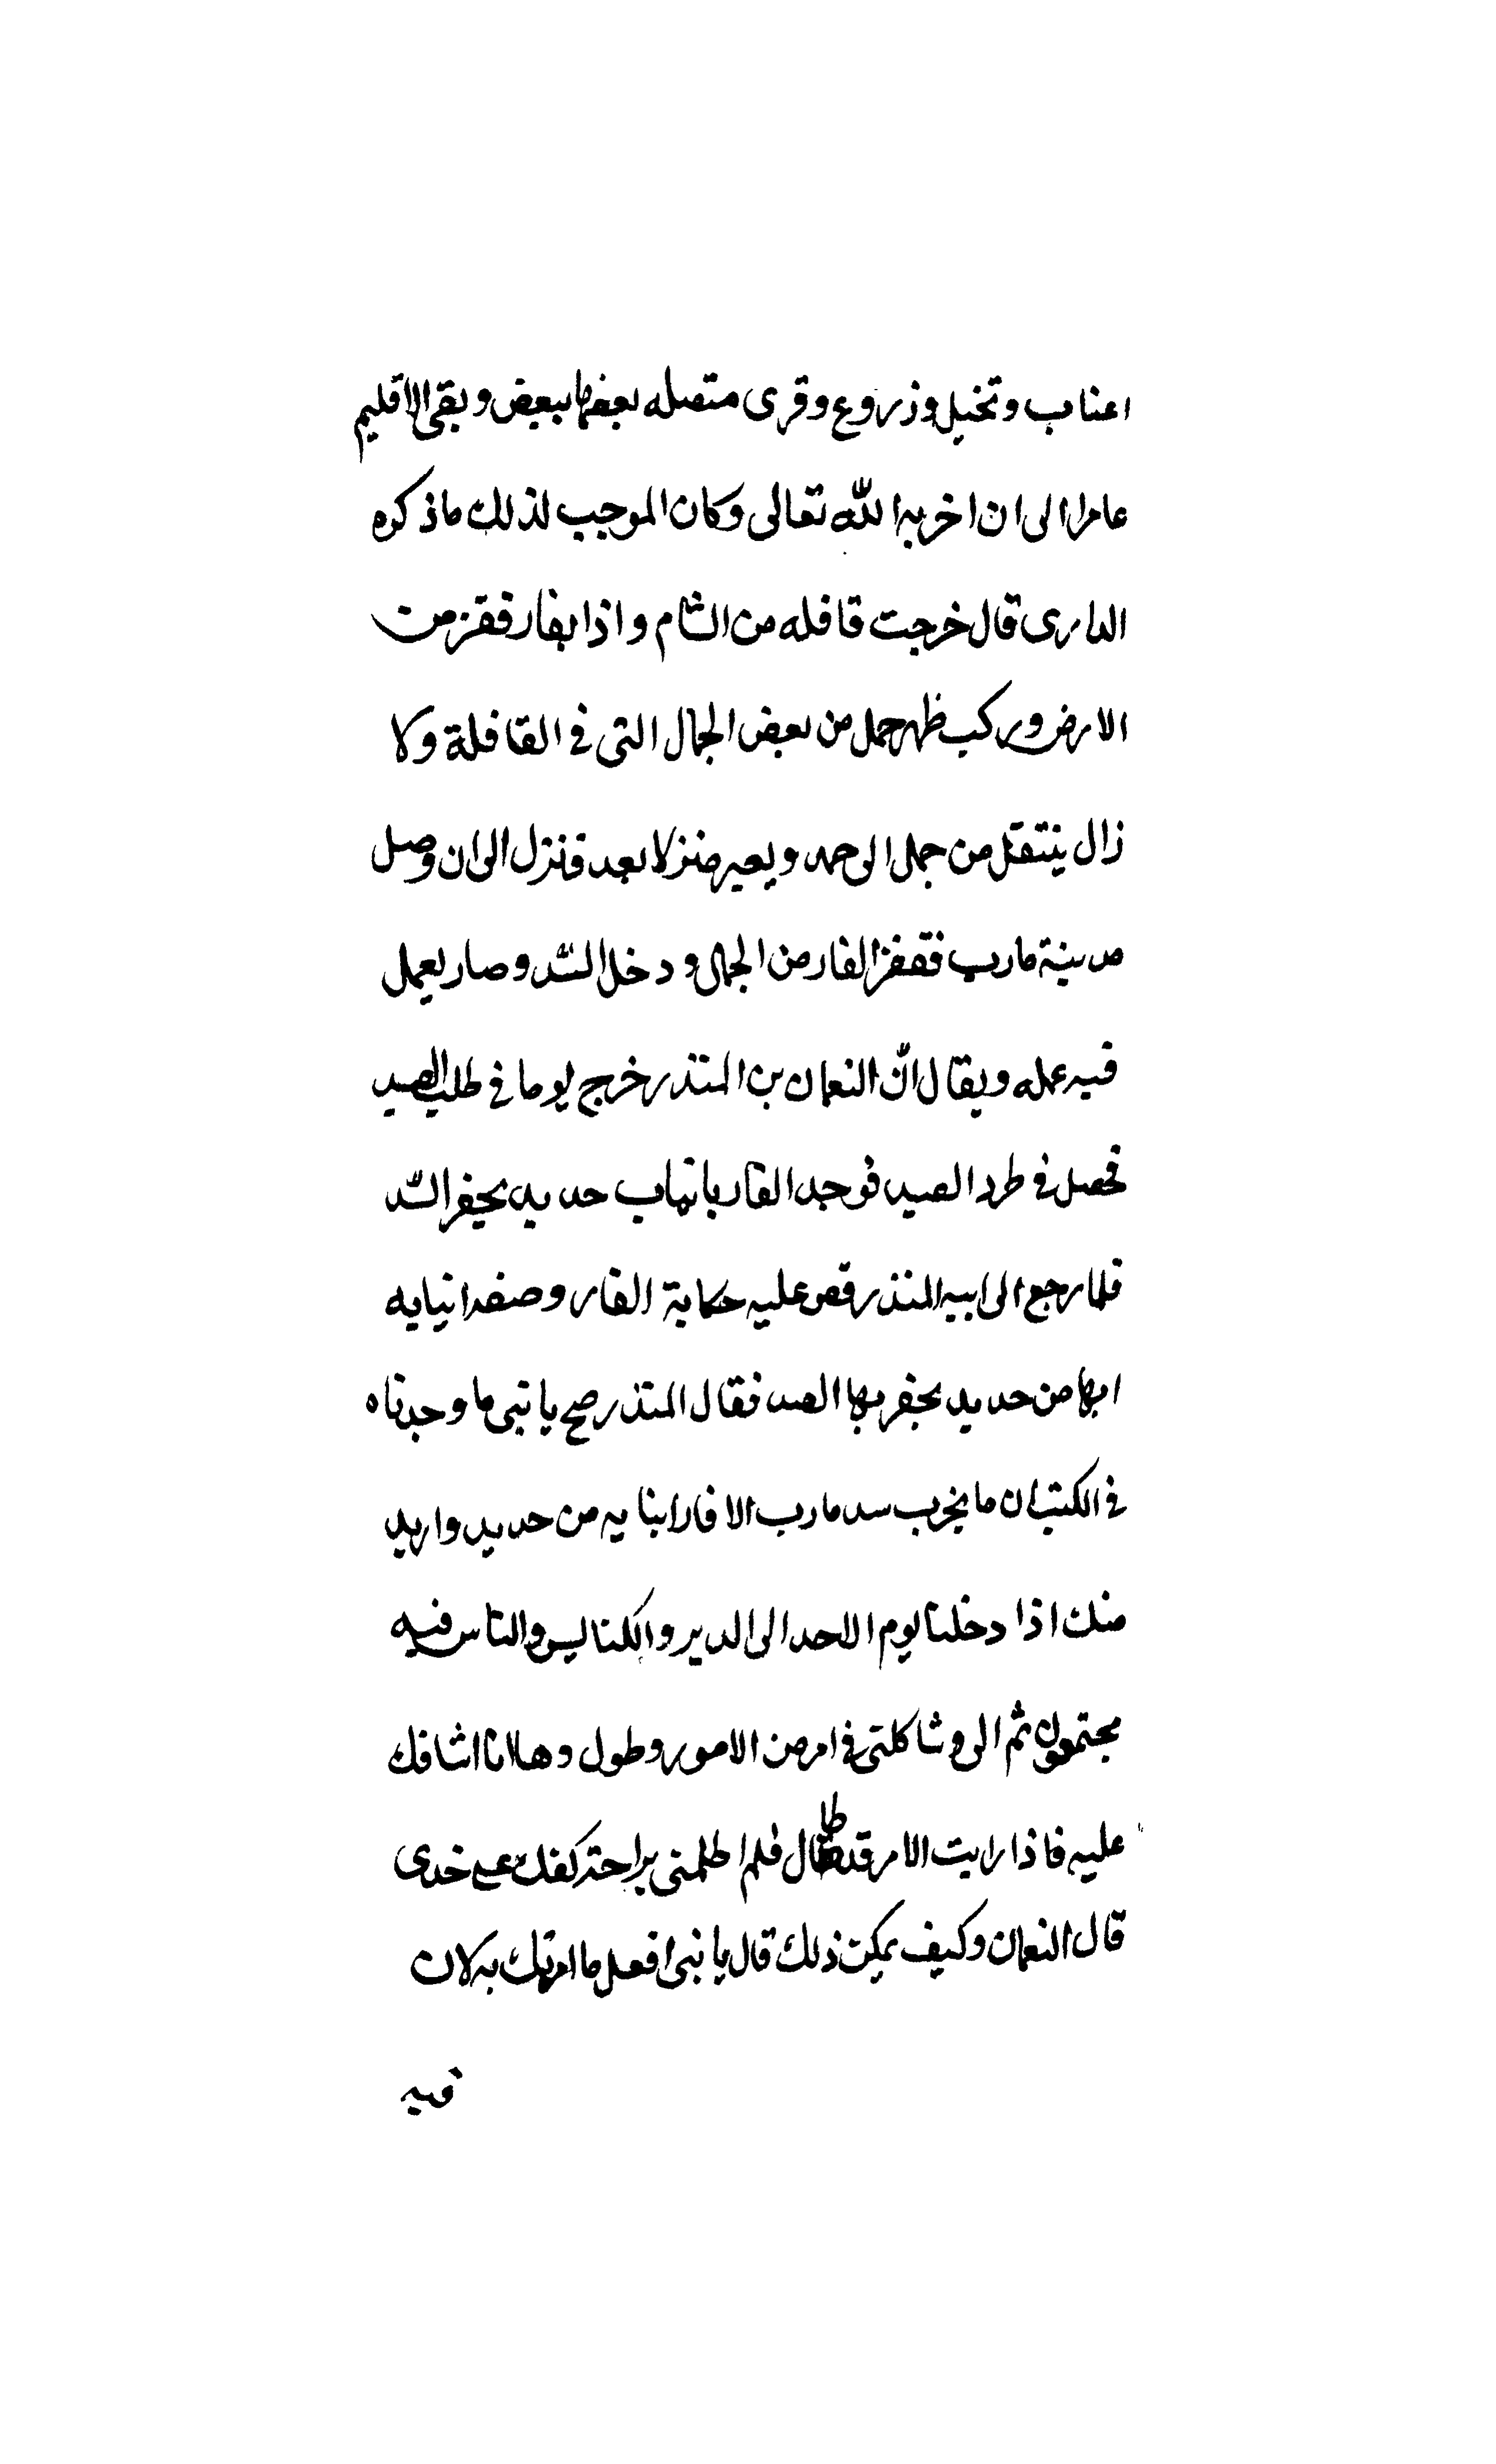 اعناب ونخيل وزروع وقرى متصله بعضها ببعض وبقى الاقليم
عامرا الى ان اخربه الله تعالى وكان الموجب لذلك ما ذكره
الدارى قال خرجت قافله من الشام واذا بفار فقز من
الارض وركب ظهر جمل من بعض الجمال التى فى القافلة ولا
زال ينتقل من جمل الى جمل ويعبر منزلا بعد منزل الى ان وصل
مدينة مارب فقفز الفار من الجمال ودخل السّد وصار يعمل
فيه عمله ويقال انّ النعمان بن المنذر خرج يوما فى طلب الصيد
فحصل فى طرد الصيد فوجد الفار بانياب حديد يحفر السّد
فلما رجع الى ابيه المنذر قص عليه حكاية الفار وصفه انيابه
انها من حديد يحفر بها السد فقال المنذر صح يا بنى ما وجدناه
فى الكتب ان ما يخرب سد مارب الا فار انيابه من حديد واريد
منك اذا دخلنا يوم الاحد الى الدير والكنايس والناس فيه
مجتمعون ثم الى وشاكلتى فى امر من الامور وطول وها انا اشافك
عليه فاذا رايت الامر قد طال فلم الطمنى براحة كفك على خدى
قال النعمان وكيف يمكن ذلك قال يا بنى افعل ما امرتك به لان
فيه